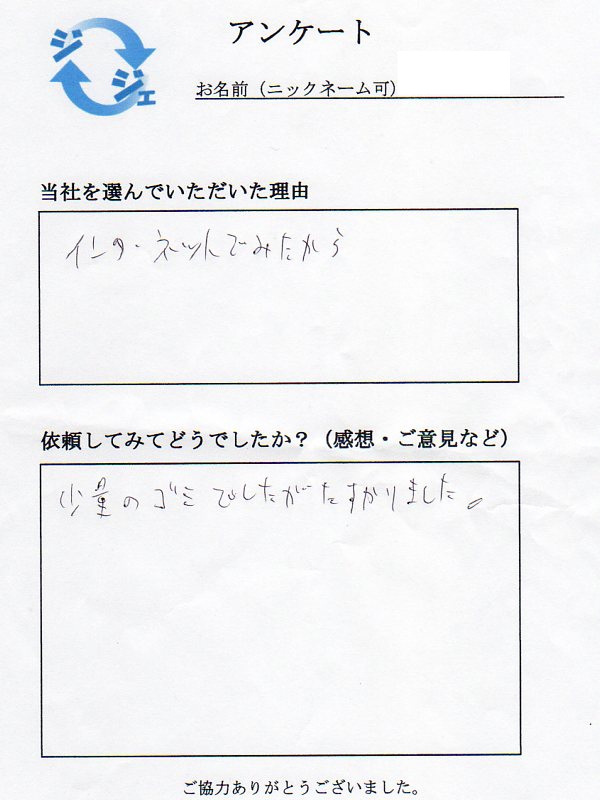 アンケート
ジジェ
お名前（ニックネーム可）
当社を選んでいただいた理由
インターネットでみたから
依頼してみてどうでしたか？（感想・ご意見など）
少量のゴミでしたがたすかりました。
ご協力ありがとうございました。